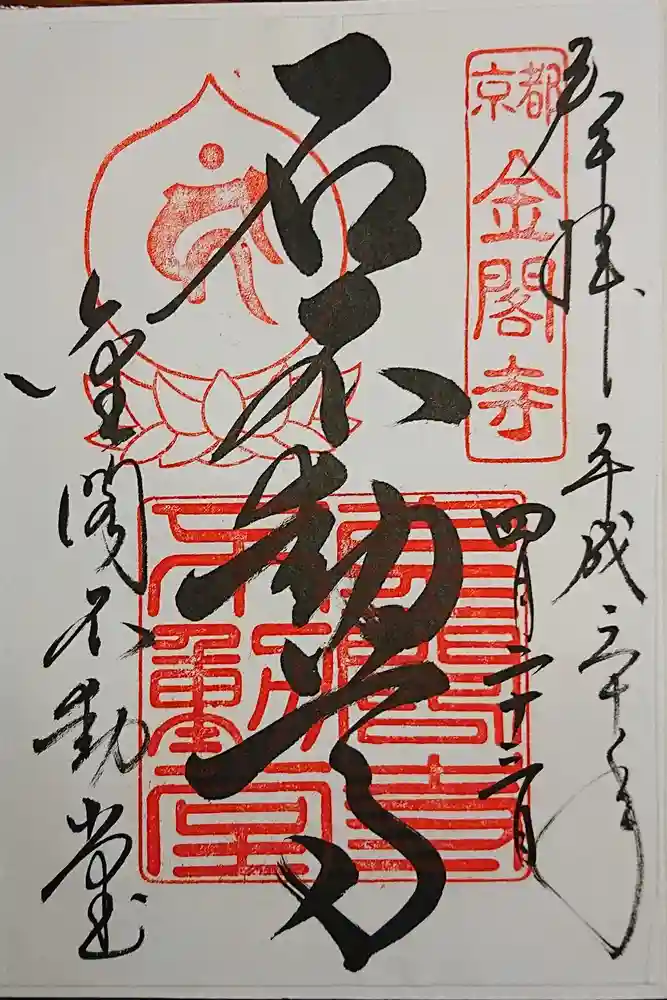 奉拝 平成三十年
四月二十二日
京都
金閣寺
石不動尊
金閣不動堂
金閣寺
不動堂